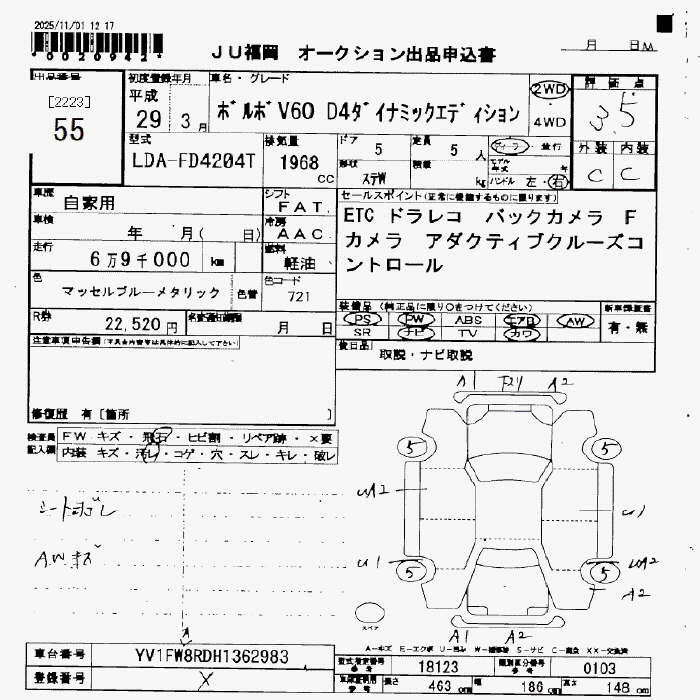 2025/11/01 12 17
*00020942*
JU福岡 オークション出品申込書
月 日
出品番号
[2223]
55
初度登録年月
平成
29 3月
車名・グレード
ボルボV60 D4ダイナミックエディション
2WD
・
4WD
評価点
3.5
型式
LDA-FD4204T
排気量
1968
CC
ドア
5
定員
5 人
ディーラ・並行
形状
ステW
積載
kg
モデル年式
年
ハンドル 左・右
外装 内装
C C
車歴
自家用
シフト
FAT
車検
年 月( 日)
冷房
AAC
走行
6万9千000 km
燃料
軽油
色
マッセルブルーメタリック
色替
色コード
721
R券
22,520円
月 日
セールスポイント(正常に機能するものに限ります)
ETC ドラレコ バックカメラ F
カメラ アダクティブクルーズコ
ントロール
装備品(純正品に限り○をつけてください)
新車保証書
PS PW ABS エアB AW
SR ナビ TV カワ
有・無
後日品
取説・ナビ取説
注意事項申告欄
修復歴 有[箇所 ]
検査員
記入欄
FW キズ・飛石・ヒビ割・リペア跡・×要
内装 キズ・汚れ・コゲ・穴・スレ・キレ・破レ
シートヨゴレ
AWキズ
A1 A2
5 5
UA2
U1
U1
5 5
A2
スペア
A1 A2
A-キズ E-エクボ U-凹み W-補修跡 S-サビ C-腐食 XX-交換済
車台番号 YV1FW8RDH1362983
登録番号 X
型式指定番号 18123
類別区分番号 0103
長さ 463 cm
幅 186 cm
高さ 148 cm